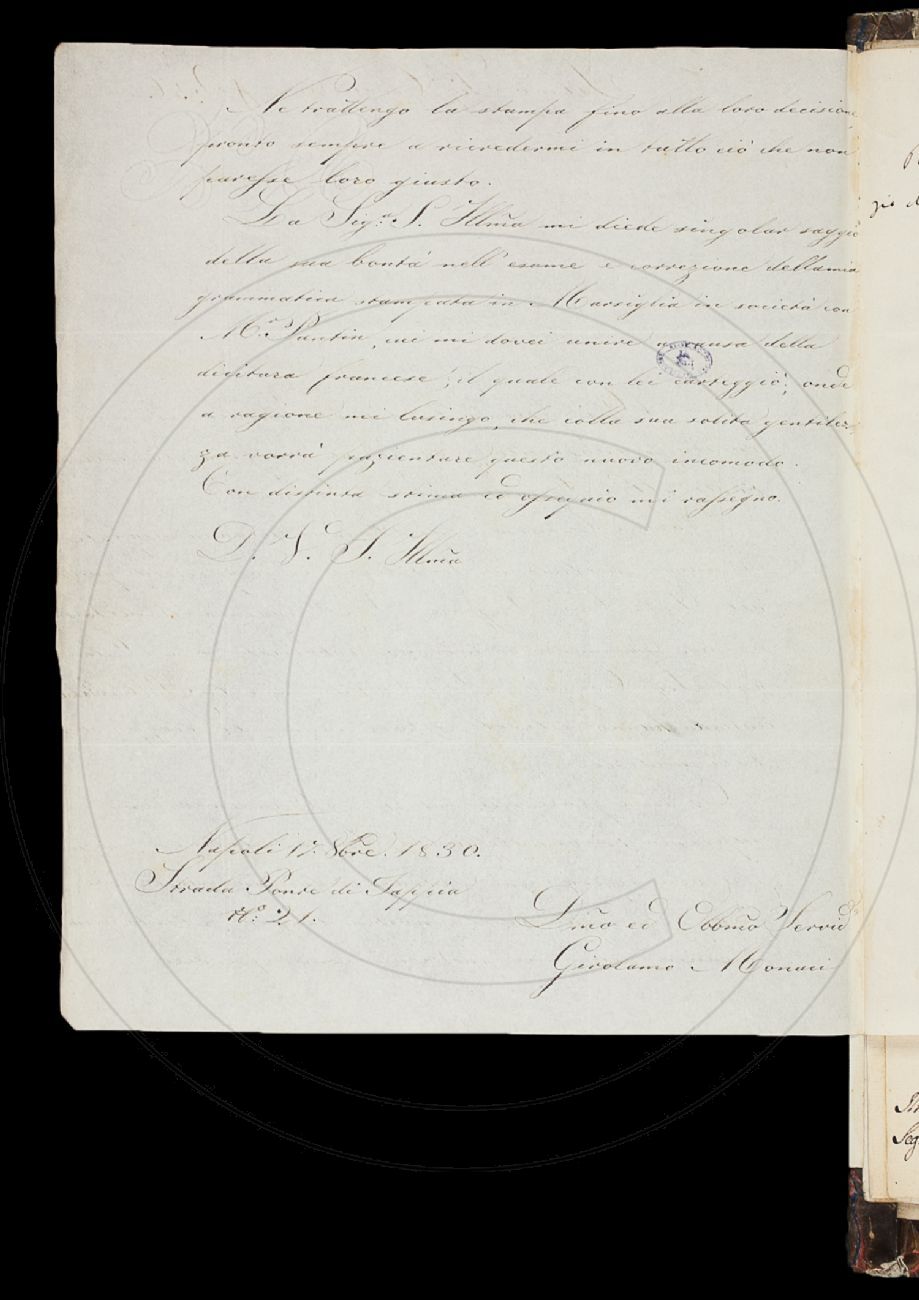 Ne trattengo la stampa fino alla loro decisione,
pronto sempre a ricredermi in tutto ciò che non
paresse loro giusto.
La Sig.ª S. Illm̃a mi diede singolar saggio
della sua bontà nell'esame e correzione della mia
grammatica stampata in Marsiglia in società con
M.r Pautin, cui mi dovei unire a causa della
dicitura francese; il quale con lei carteggiò; onde
a ragione mi lusingo, che colla sua solita gentilez-
za vorrà pazientare questo nuovo incomodo.
Con distinta stima ed ossequio mi rassegno.
D. V. S. Illm̃a
Napoli 17. 8bre. 1830.
Strada Ponte di Tappia
N.º 21.
Dm̃o ed Obbm̃o Servid.e
Girolamo Monaci